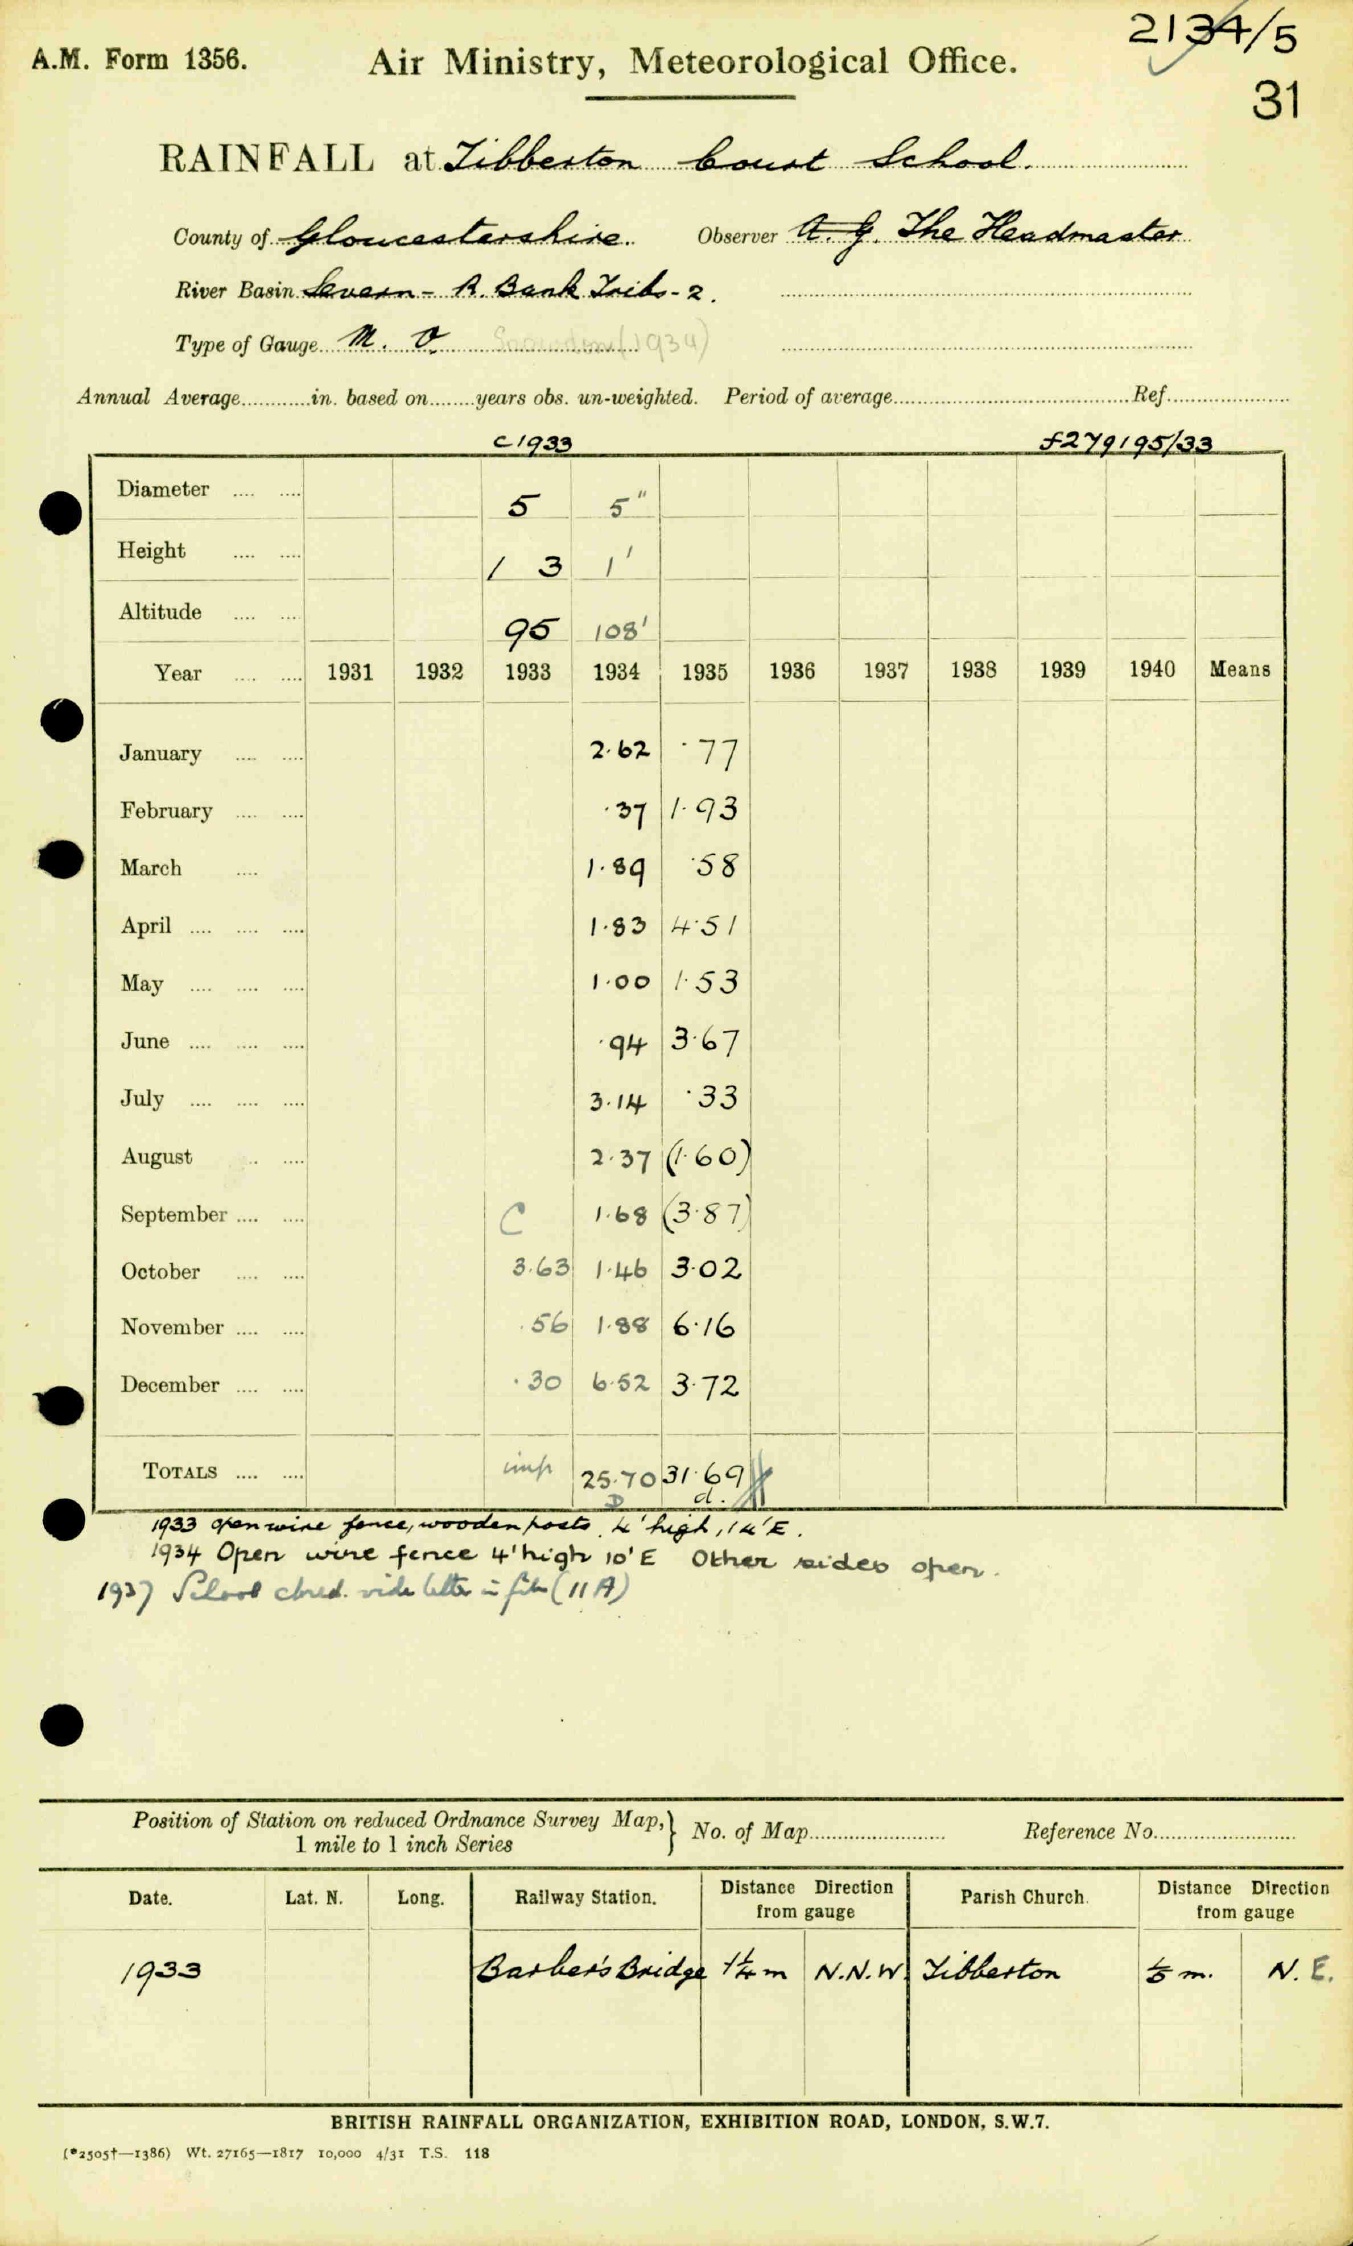 2134/5
A.M. Form 1356. Air Ministry, Meteorological Office.
31
RAINFALL at Tibberton Court School.
County of Gloucestershire. Observer A. G. The Headmaster
River Basin Severn - R. Bank Tribs - 2.
Type of Gauge M. O. Snowdon (1934)
Annual Average............in. based on........years obs. un-weighted. Period of average.......................................Ref.....................
C1933 f279195/33
Diameter .... .... 5 5"
Height .... .... 1 3 1'
Altitude .... .... 95 108'
Year .... .... 1931 1932 1933 1934 1935 1936 1937 1938 1939 1940 Means
January .... .... 2.62 .77
February .... .... .37 1.93
March .... 1.89 .58
April .... .... .... 1.83 4.51
May .... .... .... 1.00 1.53
June .... .... .... .94 3.67
July .... .... .... 3.14 .33
August .. .... 2.37 (1.60)
September .... .... C 1.68 (3.87)
October .... .... 3.63 1.46 3.02
November .... .... .56 1.88 6.16
December .... .... .30 6.52 3.72
TOTALS .... .... imp 25.70 31.69
D d.
1933 open wire fence, wooden posts 4' high, 14' E.
1934 Open wire fence 4' high 10' E Other sides open.
1937 School closed. vide letter in file (11A)
Position of Station on reduced Ordnance Survey Map,} No. of Map........................ Reference No.........................
1 mile to 1 inch Series
Date. Lat. N. Long. Railway Station. Distance Direction from gauge Parish Church. Distance Direction from gauge
1933 Barber's Bridge 1¼ m N.N.W. Tibberton ⅕ m. N. E.
BRITISH RAINFALL ORGANIZATION, EXHIBITION ROAD, LONDON, S.W.7.
(*2505†—1386) Wt. 27165—1817 10,000 4/31 T.S. 118